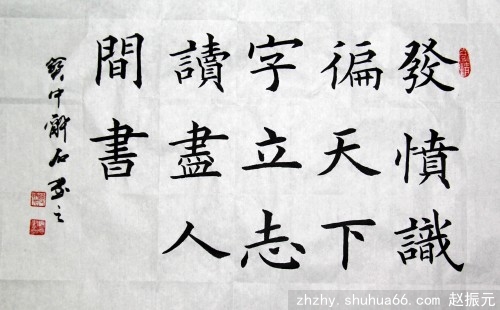 發憤識
徧天下
字立志
讀盡人
間書
zhzhy.shuhua66.com 赵振元